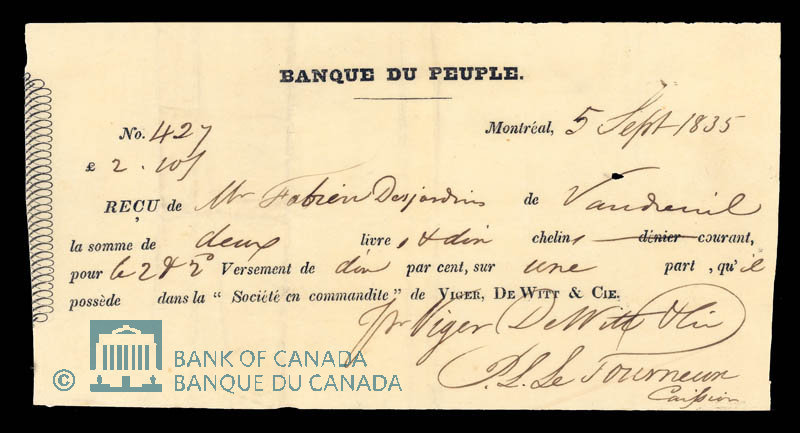 BANQUE DU PEUPLE.
No. 427 Montréal, 5 Sept 1835
£ 2.10/
REÇU de Mr Fabien Desjardins de Vaudreuil
la somme de deux livres, & dix chelins dénier courant,
pour le 2d Versement de dix par cent, sur une part, qu'il
possède dans la “ Société en commandite” de VIGER, DE WITT & CIE.
pr Viger DeWitt & Cie
P.L. Le Tourneux
Caissier
© BANK OF CANADA
BANQUE DU CANADA